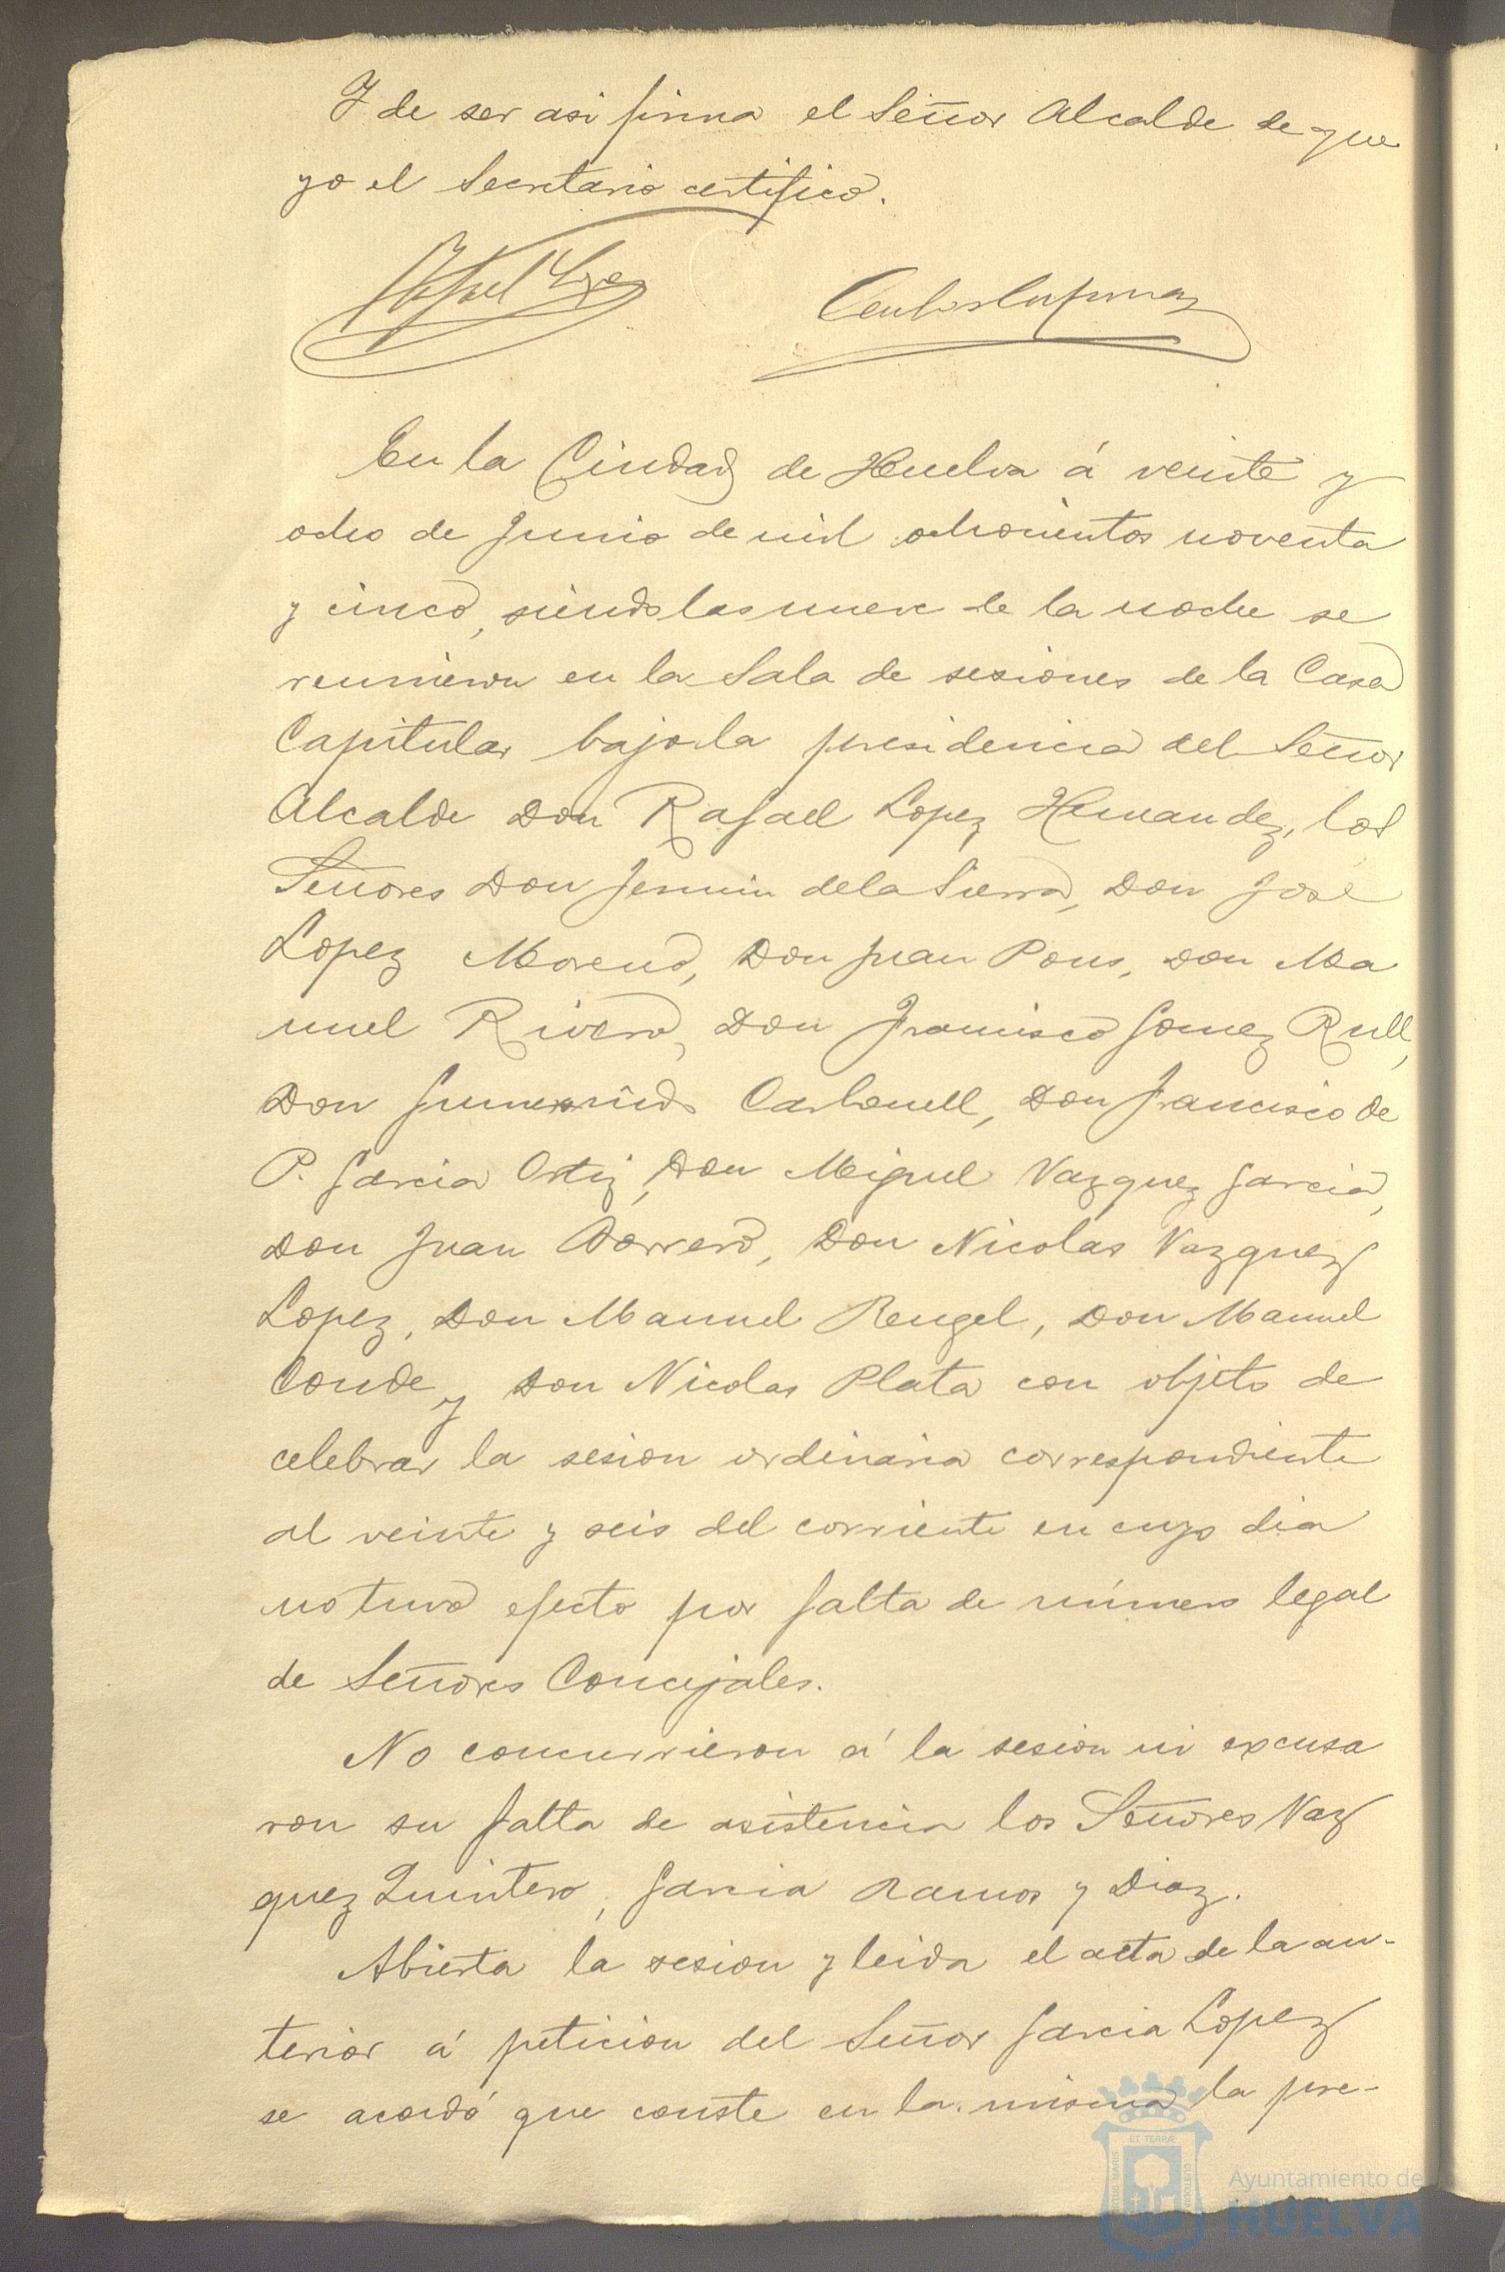 Y de ser asi firma el Señor Alcalde de que
yo el Secretario certifico.
Rafael Lopez
En la Ciudad de Huelva á veinte y
ocho de Junio de mil ochocientos noventa
y cinco, siendo las nueve de la noche se
reunieron en la Sala de sesiones de la Casa
Capitular bajo la presidencia del Señor
Alcalde Don Rafael Lopez Hernandez, los
Señores Don Fermin de la Sierra, Don José
Lopez Moreno, Don Juan Pons, Don Ma
nuel Rivero, Don Francisco Gomez Rull,
Don Gumersindo Carbonell, Don Francisco de
P. Garcia Ortiz, Don Miguel Vazquez Garcia,
Don Juan Borrero, Don Nicolas Vazquez
Lopez, Don Manuel Rengel, Don Manuel
Conde y Don Nicolas Plata con objeto de
celebrar la sesion ordinaria correspondiente
al veinte y seis del corriente en cuyo dia
no tuvo efecto por falta de número legal
de Señores Concejales.
No concurrieron á la sesion ni excusa
ron su falta de asistencia los Señores Vaz
quez Quintero, Garcia Ramos y Diaz.
Abierta la sesion y leida el acta de la an-
terior á peticion del Señor Garcia Lopez
se acordó que conste en la misma la pre-
Ayuntamiento de
HUELVA